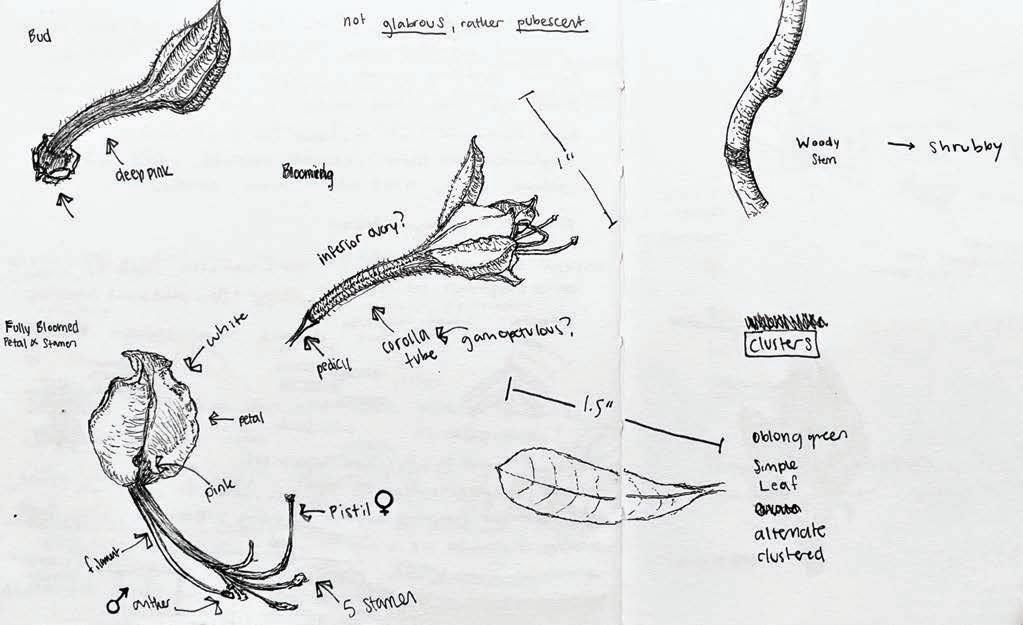 Bud
not glabrous, rather pubescent
deep pink
Blooming
1"
Woody
Stem
→ shrubby
inferior ovary?
corolla
tube
gamopetulous?
pedicil
Fully Bloomed
Petal & Stamen
white
petal
pink
Pistil ♀
filament
♂ anther
5 Stamen
clusters
1.5"
oblong green
Simple
Leaf
alternate
clustered